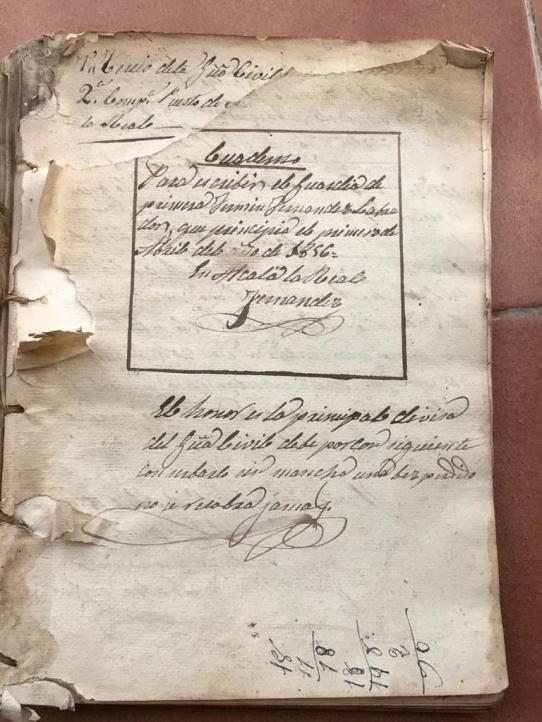 Tercio de la Gũa Civil
2.ª Comp.ª Puesto de
la Real
Cuaderno
Para escribir, el Guardia de
primera Fermin Fernandez Labra
dor, que principia el primero de
Abril del de 1856=
En Alcalá la Real
Fernandez
El honor es la principal divisa
del Gũa Civil debe por con siguiente
con serbarlo sin mancha una bez perdido
no se recobra jamas.